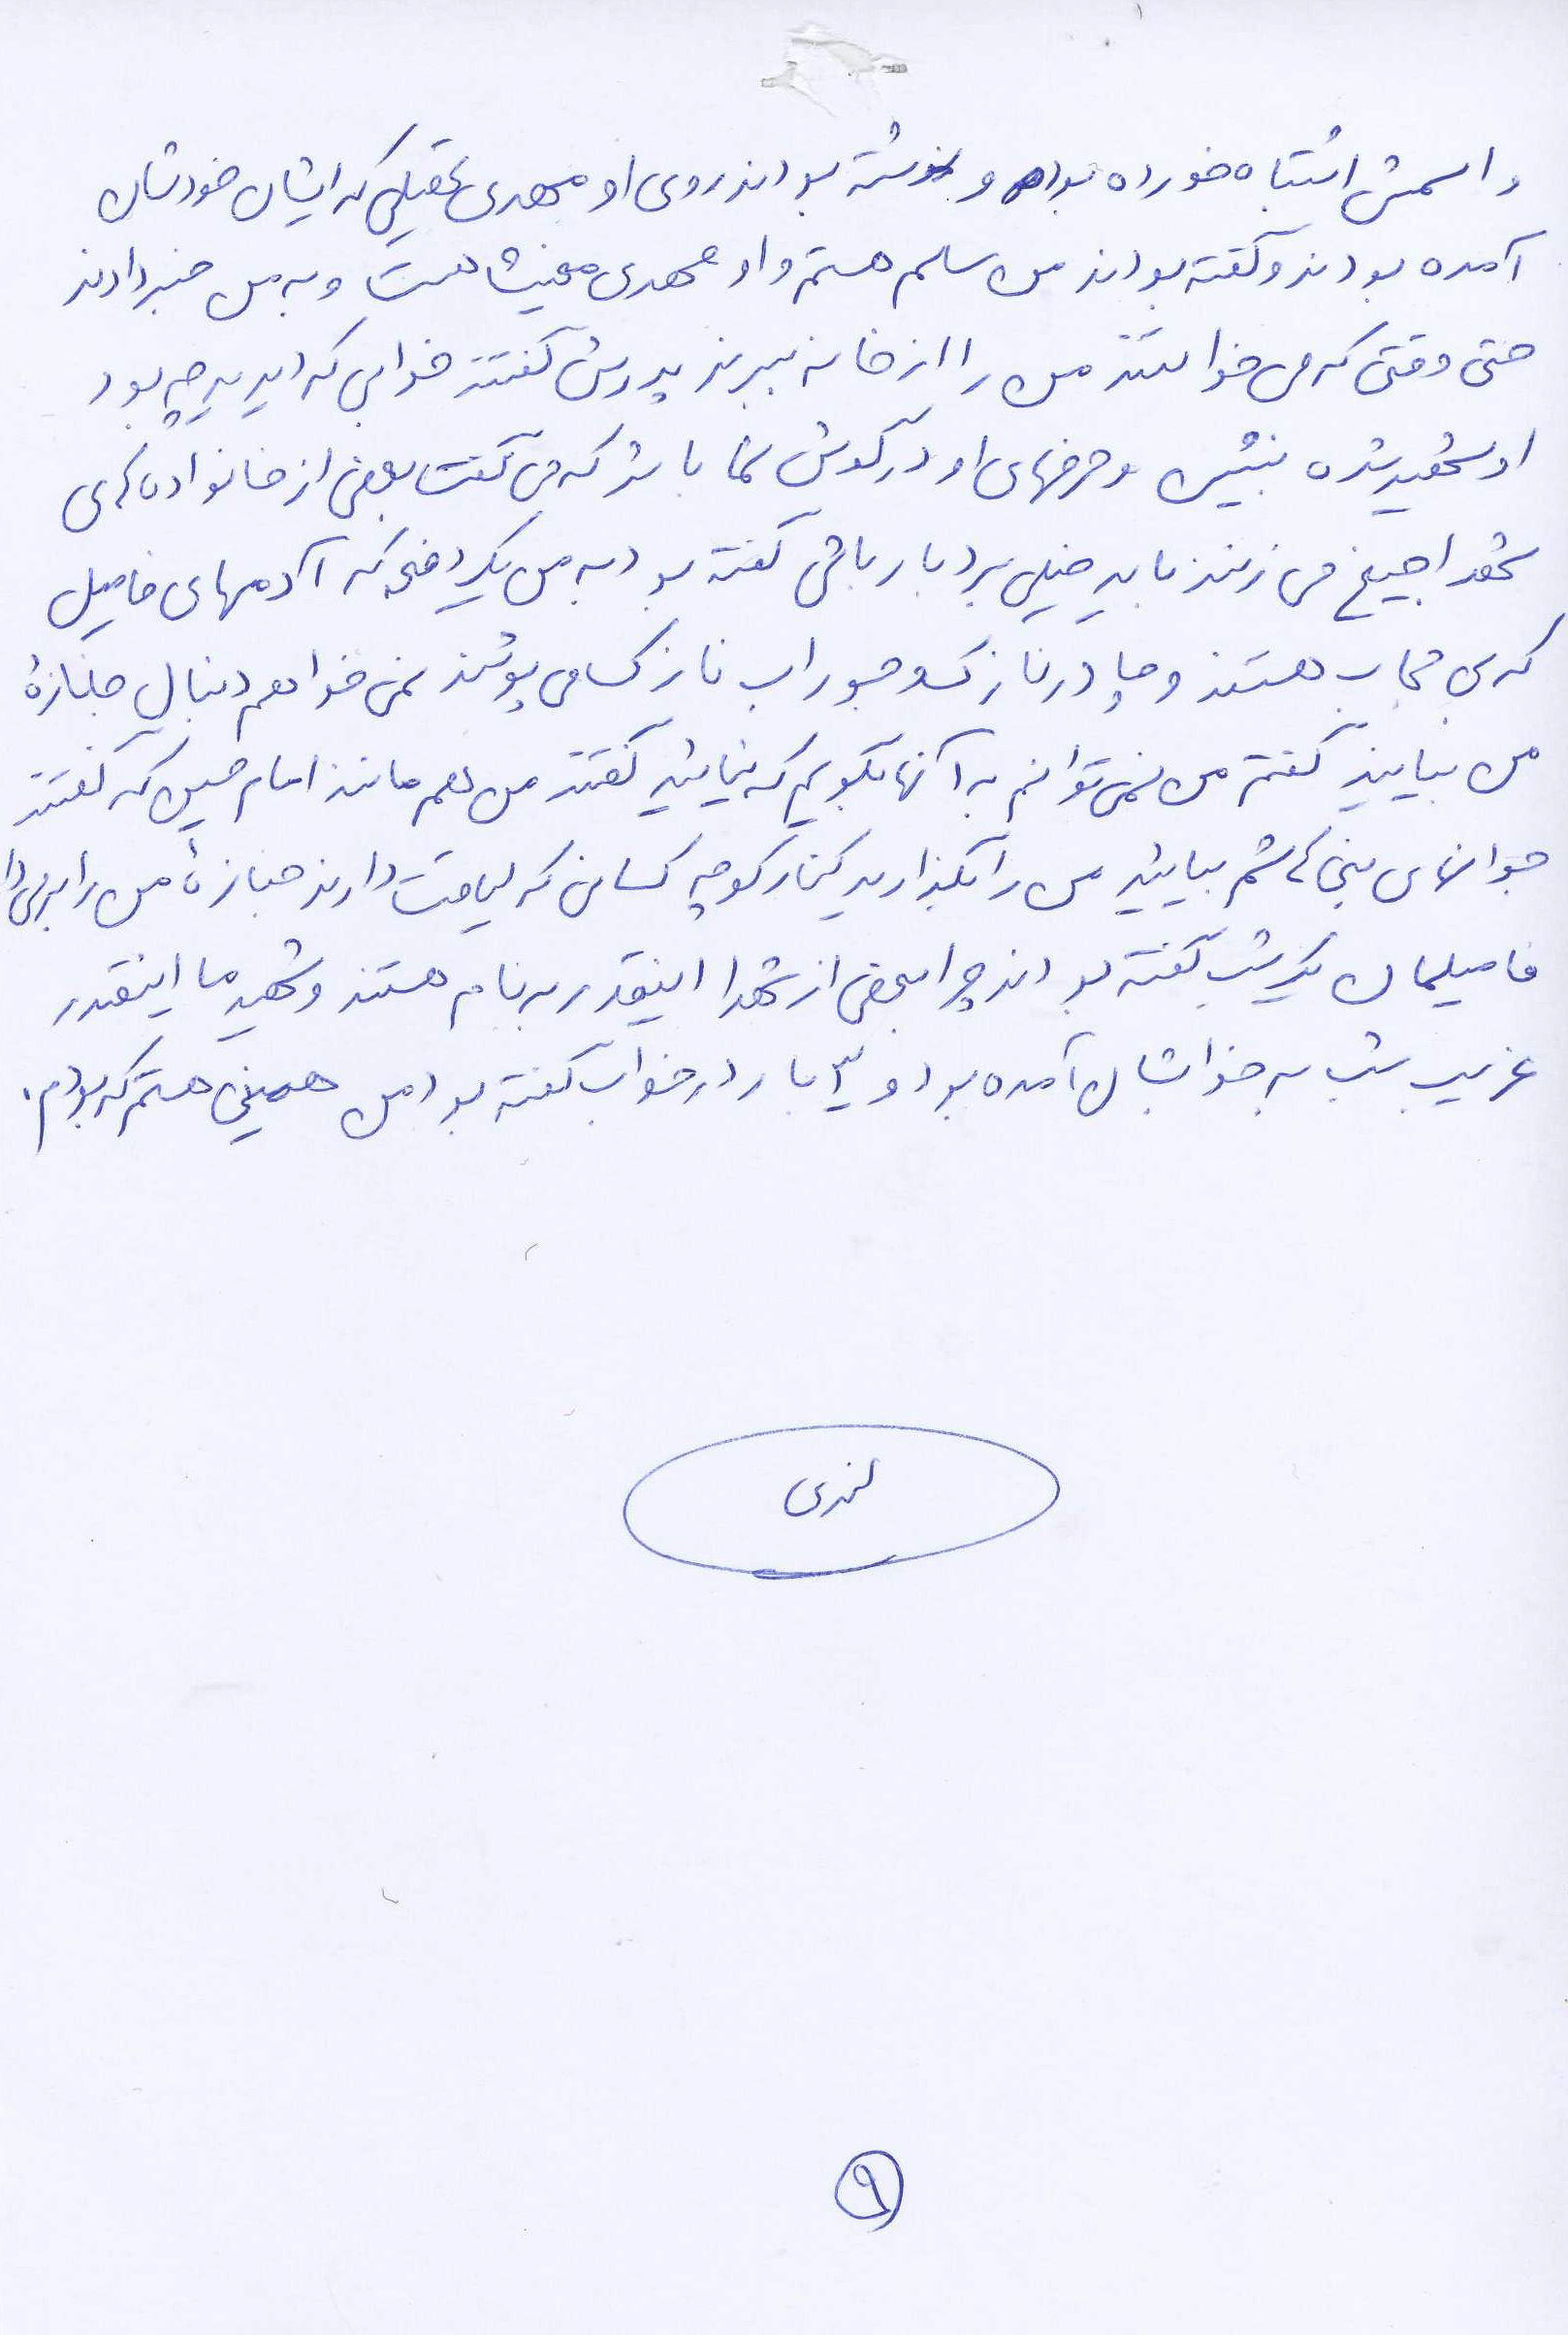 و اسمش اشتباه خورده بود و نوشته بودند روی او مهدی عقیلی که ایشان خودشان
آمده بودند و گفته بودند من سالم هستم و او مهدی هست و به من خبر دادند
حتی وقتی که می خواستند من را از خانه ببرند پدرش گفتند خوابی که دیدید چه بود
او شهید شده بنشین و حرفهای او در گوش شما باشد که می گفت بعضی از خانواده های
شهدا جیغ می زنند باید خیلی بردبار باشی گفته بود به من یکدفعه که آدمهای فامیل
که بی حجاب هستند و چادر نازک و جوراب نازک می پوشند نمی خواهم دنبال جنازهٔ
من بیایند گفتم من نمی توانم به آنها بگویم که نیائید گفتند من هم مانند امام حسین که گفتند
جوانهای بنی هاشم بیائید من را بگذارید کنار کوچه کسانی که لیاقت دارند جنازهٔ من را
فامیلمان یک شب گفته بودند چرا بعضی از شهدا اینقدر به نام هستند و شهید ما اینقدر
غریب شب به خوابشان آمده بود و ۳ بار در خواب گفته بود من همینی هستم که بودم.
۹